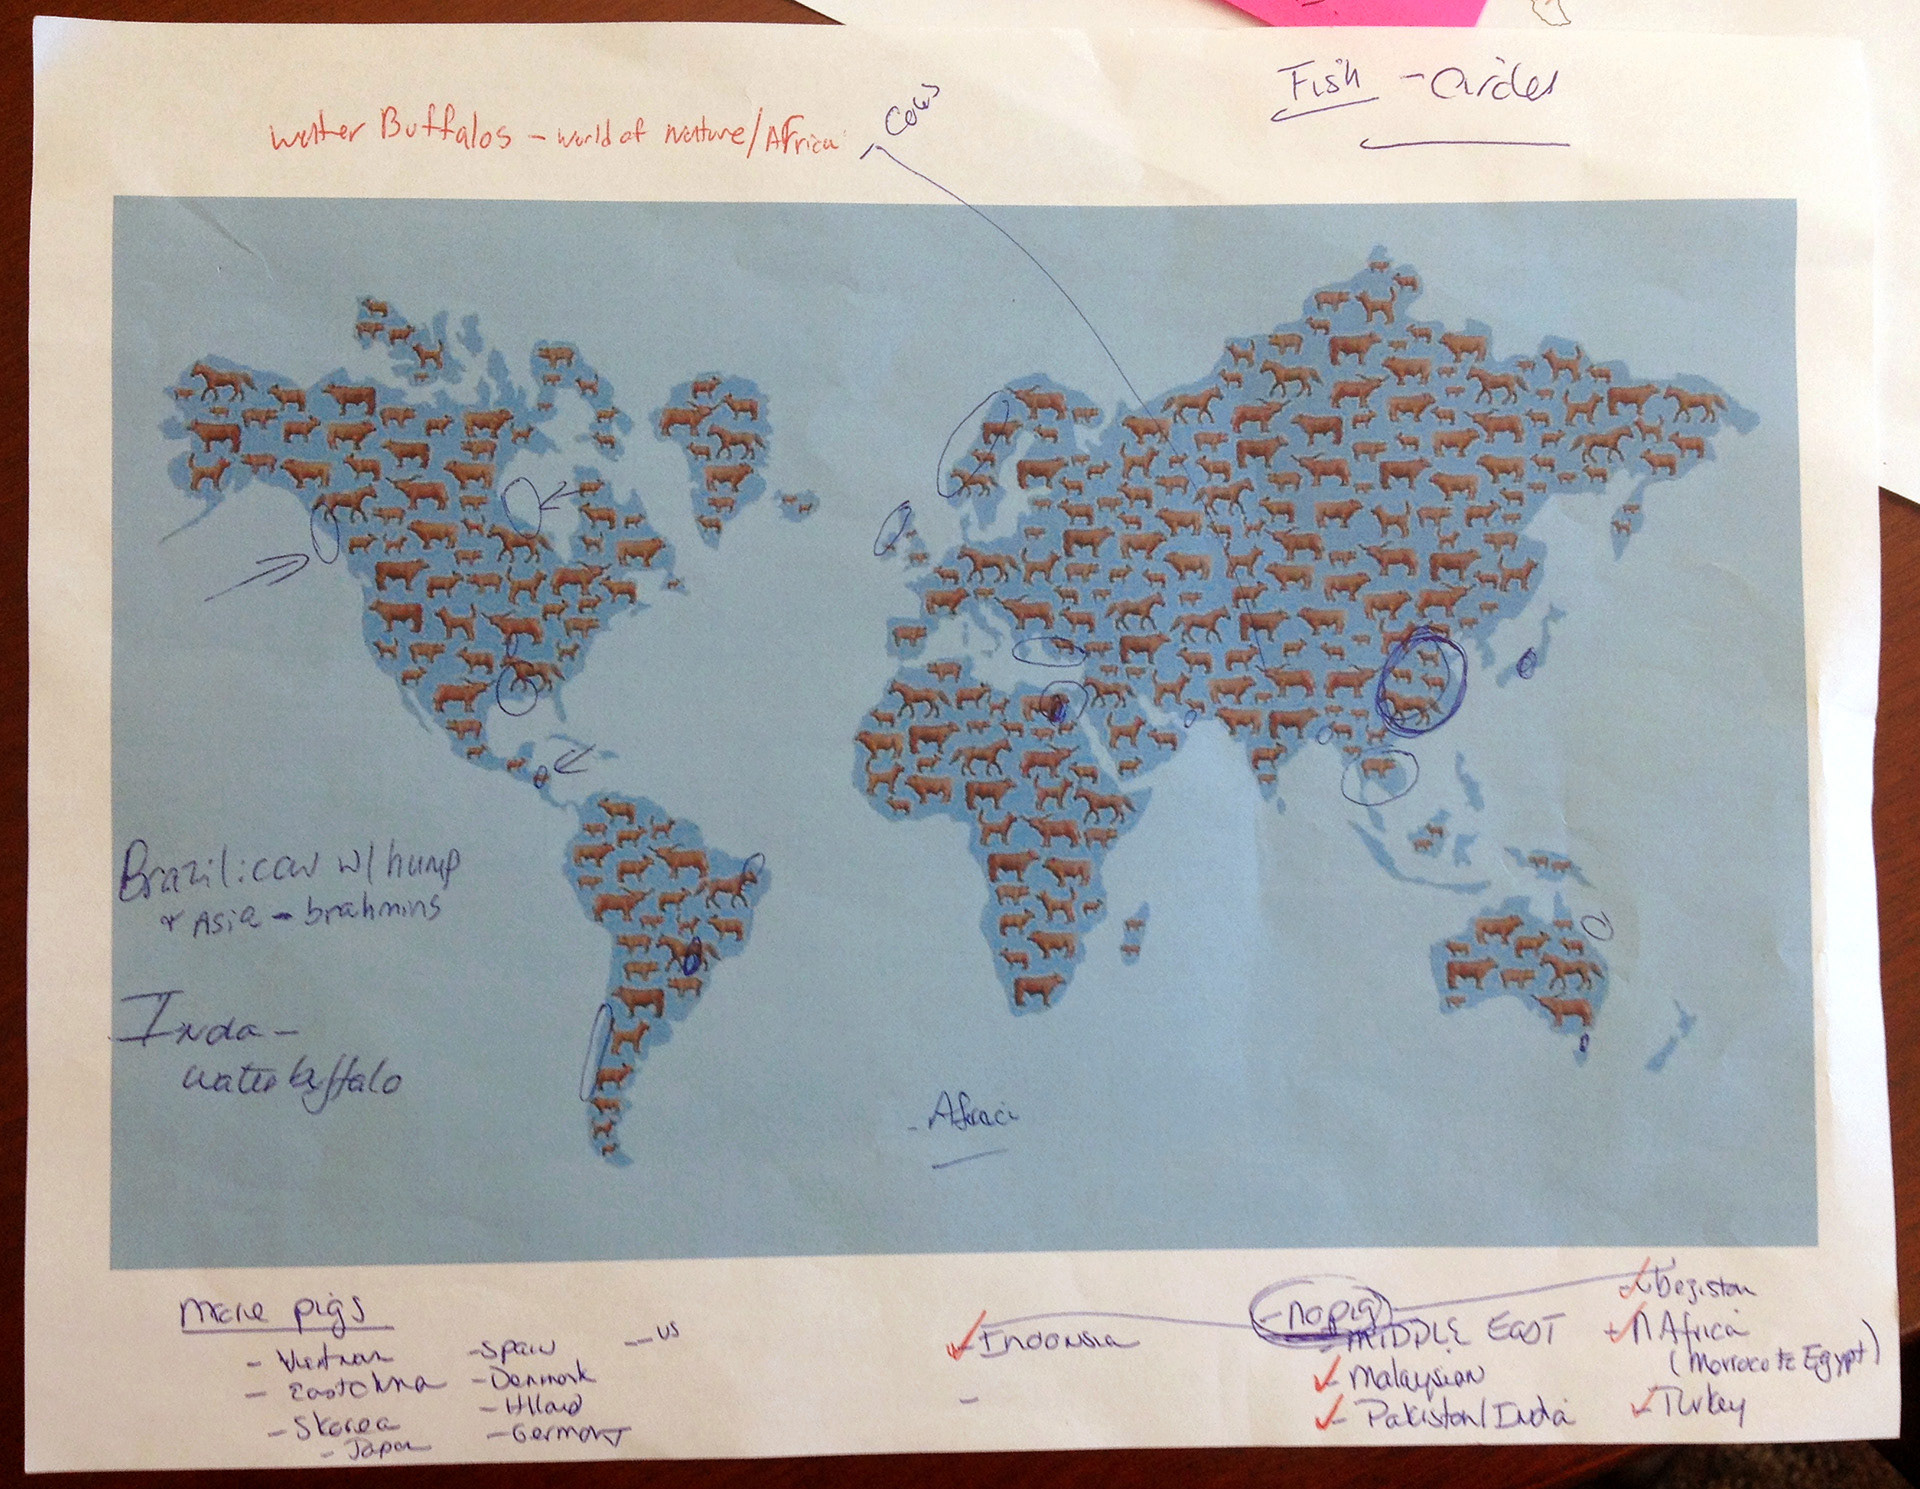 Fish - Circles
Watter Buffalos - World of Nature/Africa
- Cows
Brazil: cow w/ hump
& Asia - brahmins
Inda -
water buffalo
- Africa
More pigs
- Vietnam
- East China
- S Korea
- Japan
- Spain
- Denmark
- Germany
- US
- Indonsia
-
- no pig
- MIDDLE EAST
- Malaysian
- Pakistan/India
- N Africa
(Morroco to Egypt)
- Turkey